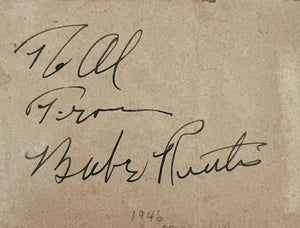 To Al
From
Babe Ruth
1946